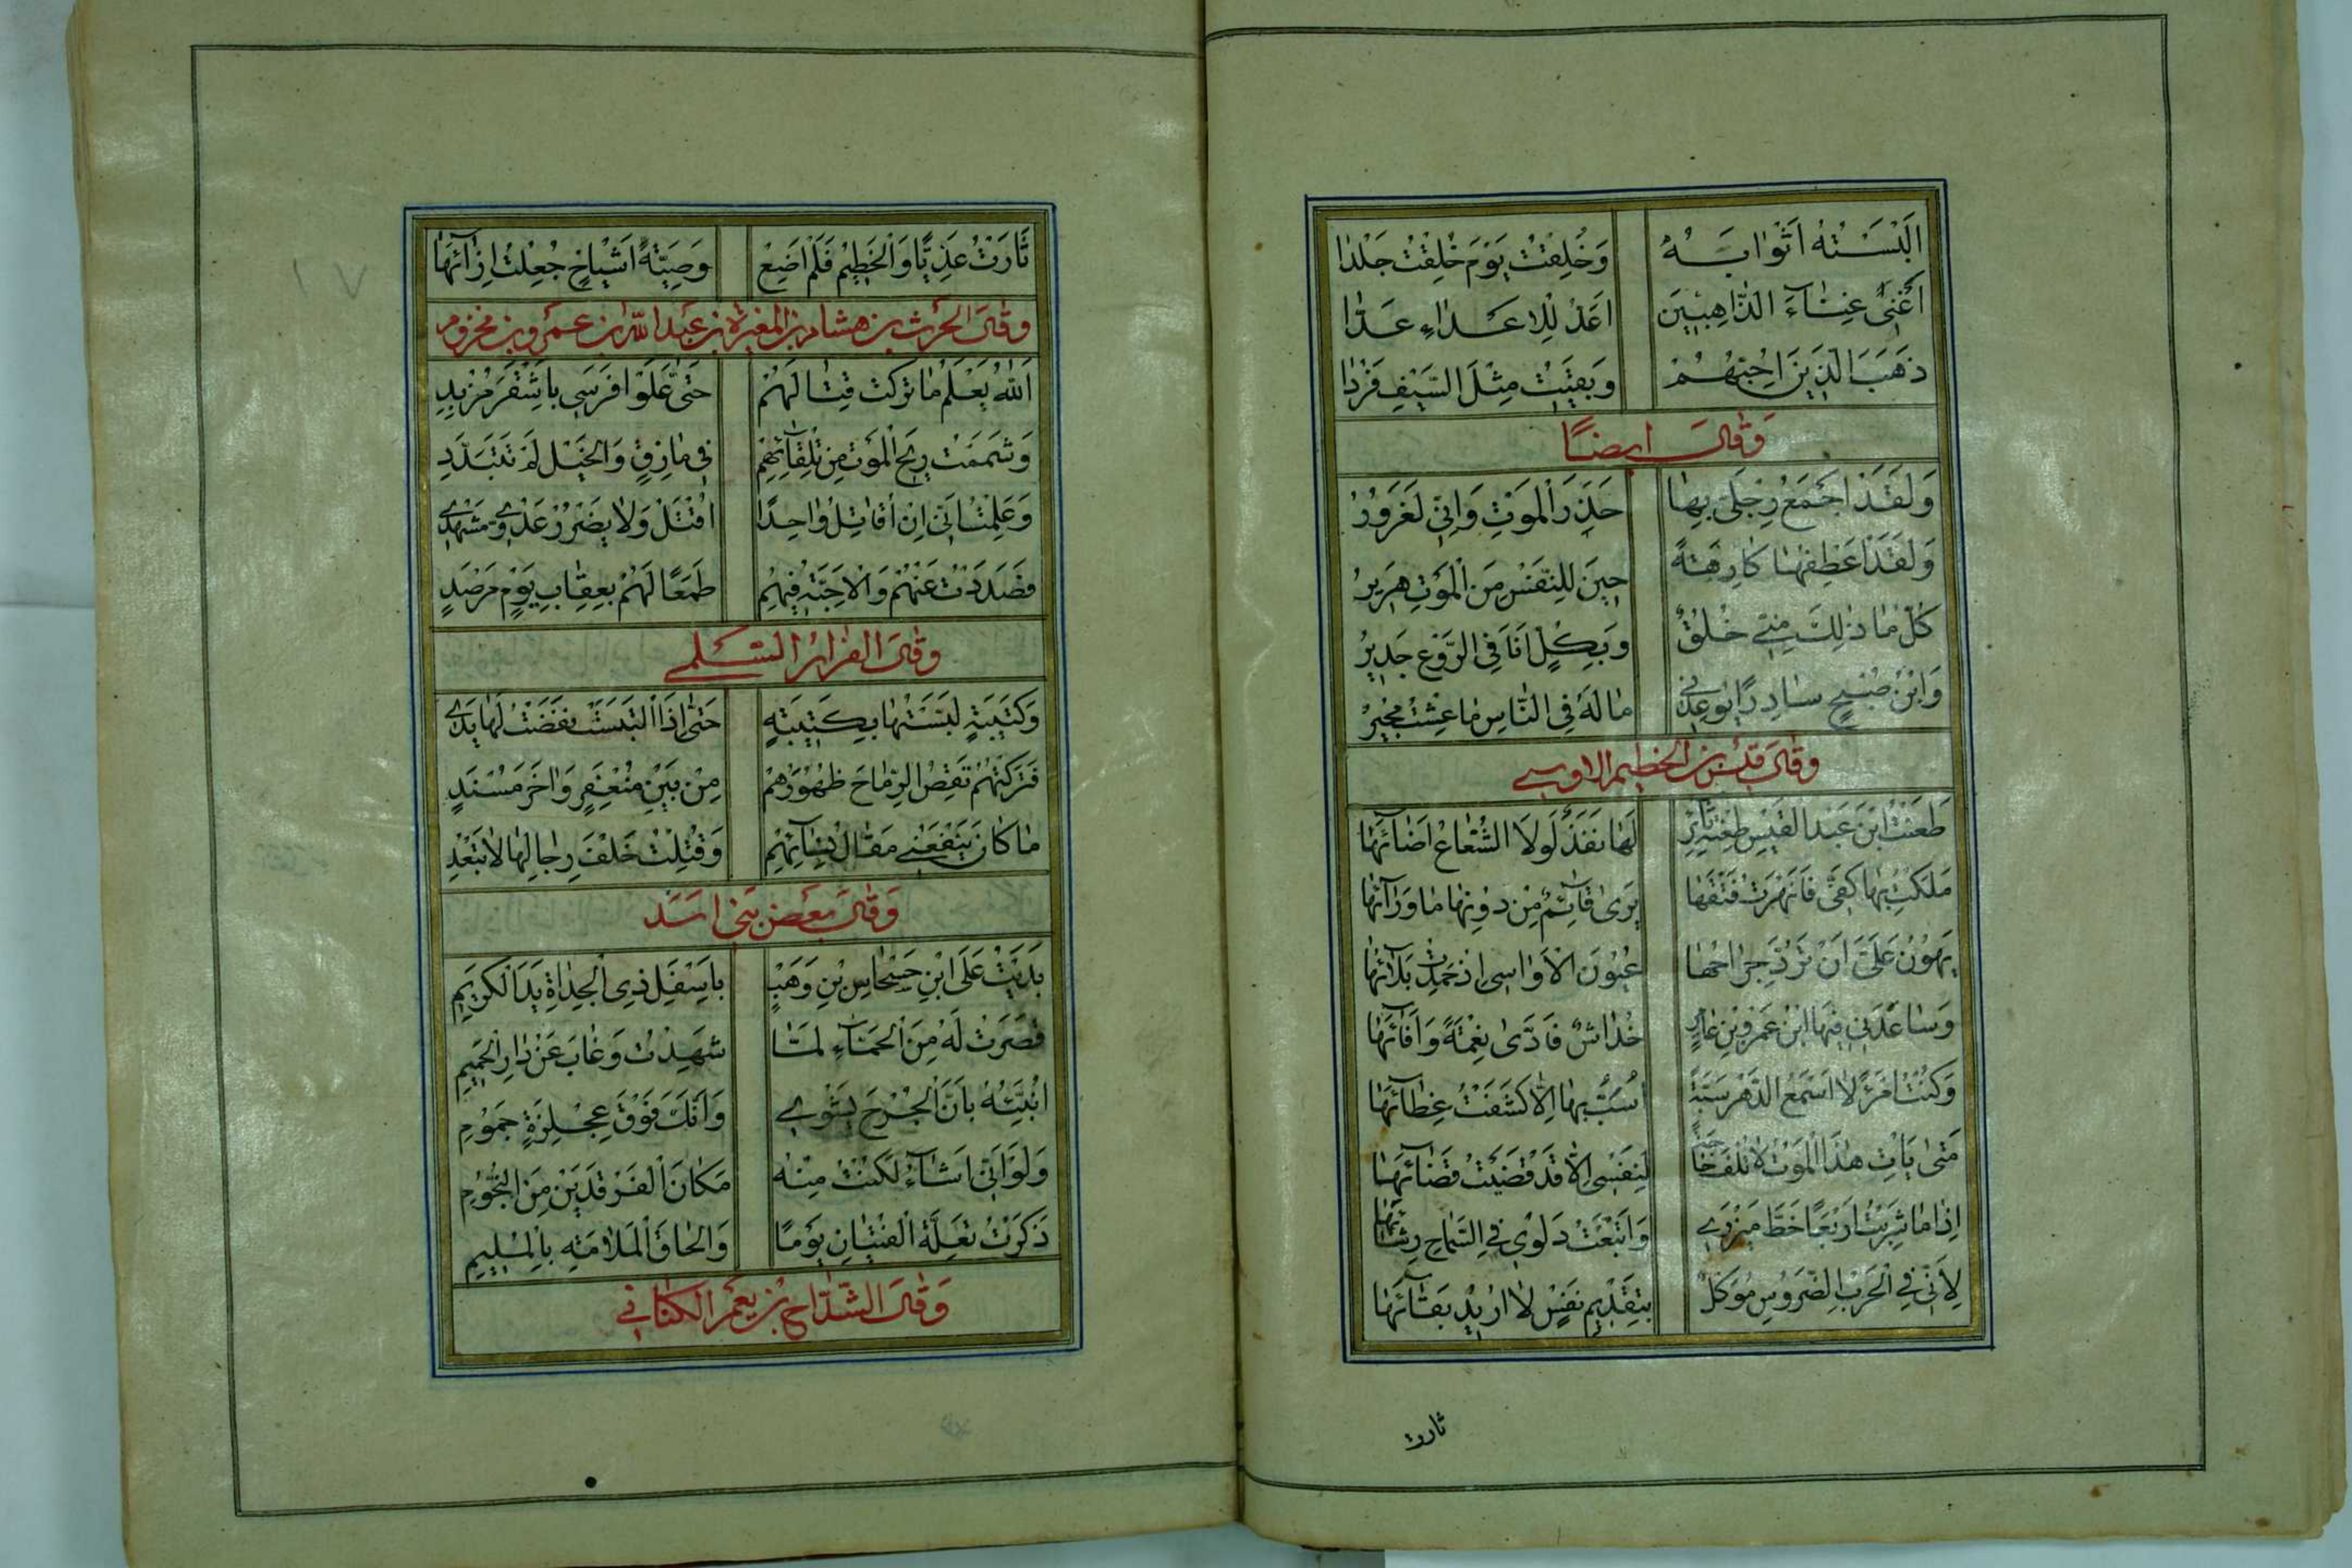 اَلْبَسْتُهُ اَثْوابَهُ وَخُلِقْتُ يَوْمَ خُلِقْتُ جَلْدا
اُغْنِى غِناءَ الذّاهِبِينَ اُعَدُّ لِلاعَداءِ عَدّا
ذَهَبَ الَّذِينَ اُحِبُّهُمْ وَبَقِيتُ مِثْلَ السَّيْفِ فَرْدا
وَقالَ ايضًا
وَلَقَدْ اَجْمَعُ رِجْلَىَّ بِها حَذَرَ الْمَوْتِ وَاِنِّي لَغَرُورُ
وَلَقَدْ اَعْطِفُها كارِهَةً حِينَ لِلنَّفْسِ مِنَ الْمَوْتِ هَرِيرُ
كُلُّ ماذلِكَ مِنِّى خُلُقٌ وَبِكُلٍّ اَنَا فِى الرَّوْعِ جَدِيرُ
وَابْنُ صُبْحٍ سادِرًا يُوعِدُنِى مالَهُ فِى النّاسِ ماعِشْتُ مُجِيرُ
وَقالَ قَيْسُ بن الخطيم الاوسى
طَعَنْتُ ابْنَ عَبْدِ الْقَيْسِ طَعْنَةَ ثائِرٍ لَها نَفَذٌ لَولا الشُّعاعُ اَضائَها
مَلَكْتُ بِها كَفِّى فَاَنْهَرْتُ فَتْقَها يَرى قائِمٌ مِنْ دُونِها ماوَرائَها
يَهُونُ عَلَىَّ اَنْ تَرُدَّ جِراحُها عُيُونَ الاَواسِى اِذ حَمِدْتُ بَلائَها
وَساعَدَنِى فِيهَا ابْنُ عَمْرِو بْنِ عامِرٍ خُداشٌ فَاَدّى نِعْمَةً وَاَفائَها
وَكُنْتُ امْرَءً لا اَسْمَعُ الدَّهْرَ سُبَّةً اُسَبُّ بِها اِلّا كَشَفْتُ غِطائَها
مَتى يَاْتِ هذَا الْمَوْتُ لاتُلْفَ حاجَةٌ لِنَفْسِى اِلّا قَد قَضَيْتُ قَضائَها
اِذا ماشَرِبْتُ اَرْبَعًا خَطَّ مِيزَرِى وَاَتْبَعْتُ دَلْوِى فِى السَّماحِ رِشائَها
لِاَنِّى فِى الْحَرْبِ الضَّرُوسِ مُوَكَّلٌ بِتَقْدِيمِ نَفْسٍ لا اُرِيدُ بَقائَها
ثارت
ثَارَتُ عَدِيًّا وَالْخَطِيمَ فَلَمْ اُضِعْ وَصِيَّةَ اَشْياخٍ جُعِلْتُ اِزائَها
وقال الحرث بن هشام بن المغيرة بن عبد الله بن عمرو بن مخزوم
اَللهُ يَعْلَمُ ماتَرَكْتُ قِتالَهُمْ حَتّى عَلَوْا فَرَسِى بِاَشْقَرَ مُزْبِدِ
وَشَمَمْتُ رِيحَ الْمَوْتِ مِنْ تِلْقائِهِمْ فِى مازِقٍ وَالْخَيْلُ لَمْ تَتَبَدَّدِ
وَعَلِمْتُ اَنِّى اِنْ اُقاتِلْ واحِدًا اُقْتَلْ وَلا يَضْرُرْ عَدُوِّى مَشْهَدِى
فَصَدَدْتُ عَنْهُمْ وَالاَحِبَّةُ فِيهِمِ طَمَعًا لَهُمْ بِعِقابِ يَوْمٍ مَرْصَدِ
وقال الفرّار السُّلمى
وَكَتِيبَةٍ لَبَّسْتُها بِكَتِيبَةٍ حَتّى اِذَا الْتَبَسَتْ نَفَضْتُ لَها يَدِى
فَتَرَكْتُهُمْ تَقِصُ الرِّماحُ ظُهُورَهُمْ مِنْ بَيْنِ مُنْعَفِرٍ وَاخَرَ مُسْنَدِ
ماكانَ يَنْفَعُنِى مَقالُ نِسائِهِمْ وَقُتِلْتُ خَلْفَ رِجالِها لاتَبْعَدِ
وَقالَ بعض بَنى اسَد
بَدَيْتُ عَلَى ابْنِ حَسْحاسِ بْنِ وَهْبٍ بِاَسْفَلِ ذِى الْجِذاةِ يَدَ الْكَرِيمِ
قَصَرْتُ لَهُ مِنَ الْحَمّاءِ لَمّا شَهِدْتُ وَغابَ عَنْ دارِ الْحَمِيمِ
اُنَبِّئُهُ بِاَنَّ الْجُرْحَ يُشْوِى وَاَنَّكَ فَوْقَ عِجْلِزَةٍ جَمُومِ
وَلَوْ اَنِّى اَشاءُ لَكُنْتُ مِنْهُ مَكانَ الْفَرْقَدَيْنِ مِنَ النُّجُومِ
ذَكَرْتُ تَعِلَّةَ الْفِتْيانِ يَوْمًا وَاِلْحاقَ الْمَلامَةِ بِالْمُلِيمِ
وَقالَ الشدّاخ بن يعمر الكنانى